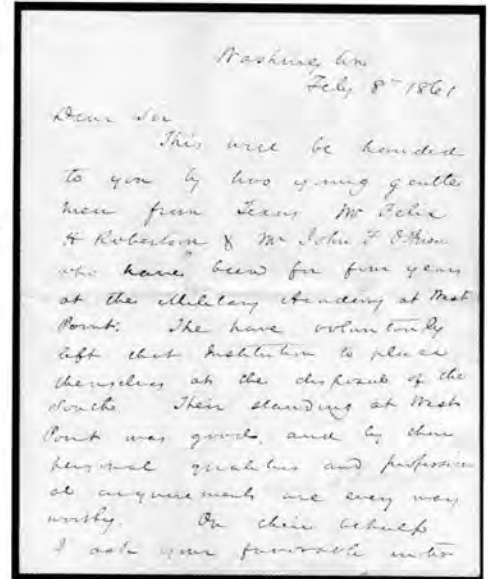 Washington
Feby 8th 1861
Dear Sir
This will be handed
to you by two young gentle
men from Texas Mr Felix
H Robertson & Mr John F O'Brien
who have been for four years
at the Military Academy at West
Point. The have voluntarily
left that Institution to place
themselves at the disposal of the
South. Their standing at West
Point was good, and by their
personal qualities and profession
al acquirements are every way
worthy. On their behalf
I ask your favorable notice